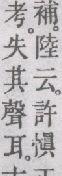 補。陸云。許慎
考。失其聲耳。